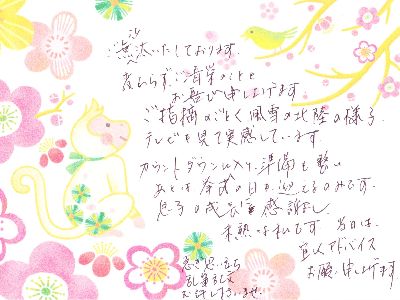 ご無沙汰いたしております。
ご清栄のことと
お喜び申し上げます
ご指摘のごとく風雪の北陸の様子
テレビを見て実感しています
カウントダウンに入り、準備も整い
あとは今式の日を迎えるのみです。
息子の成長に感謝し
未熟な私です 当日は、
アドバイス
お願い申し上げます
急ぎ思い立ち
乱筆乱文
お許し下さいませ